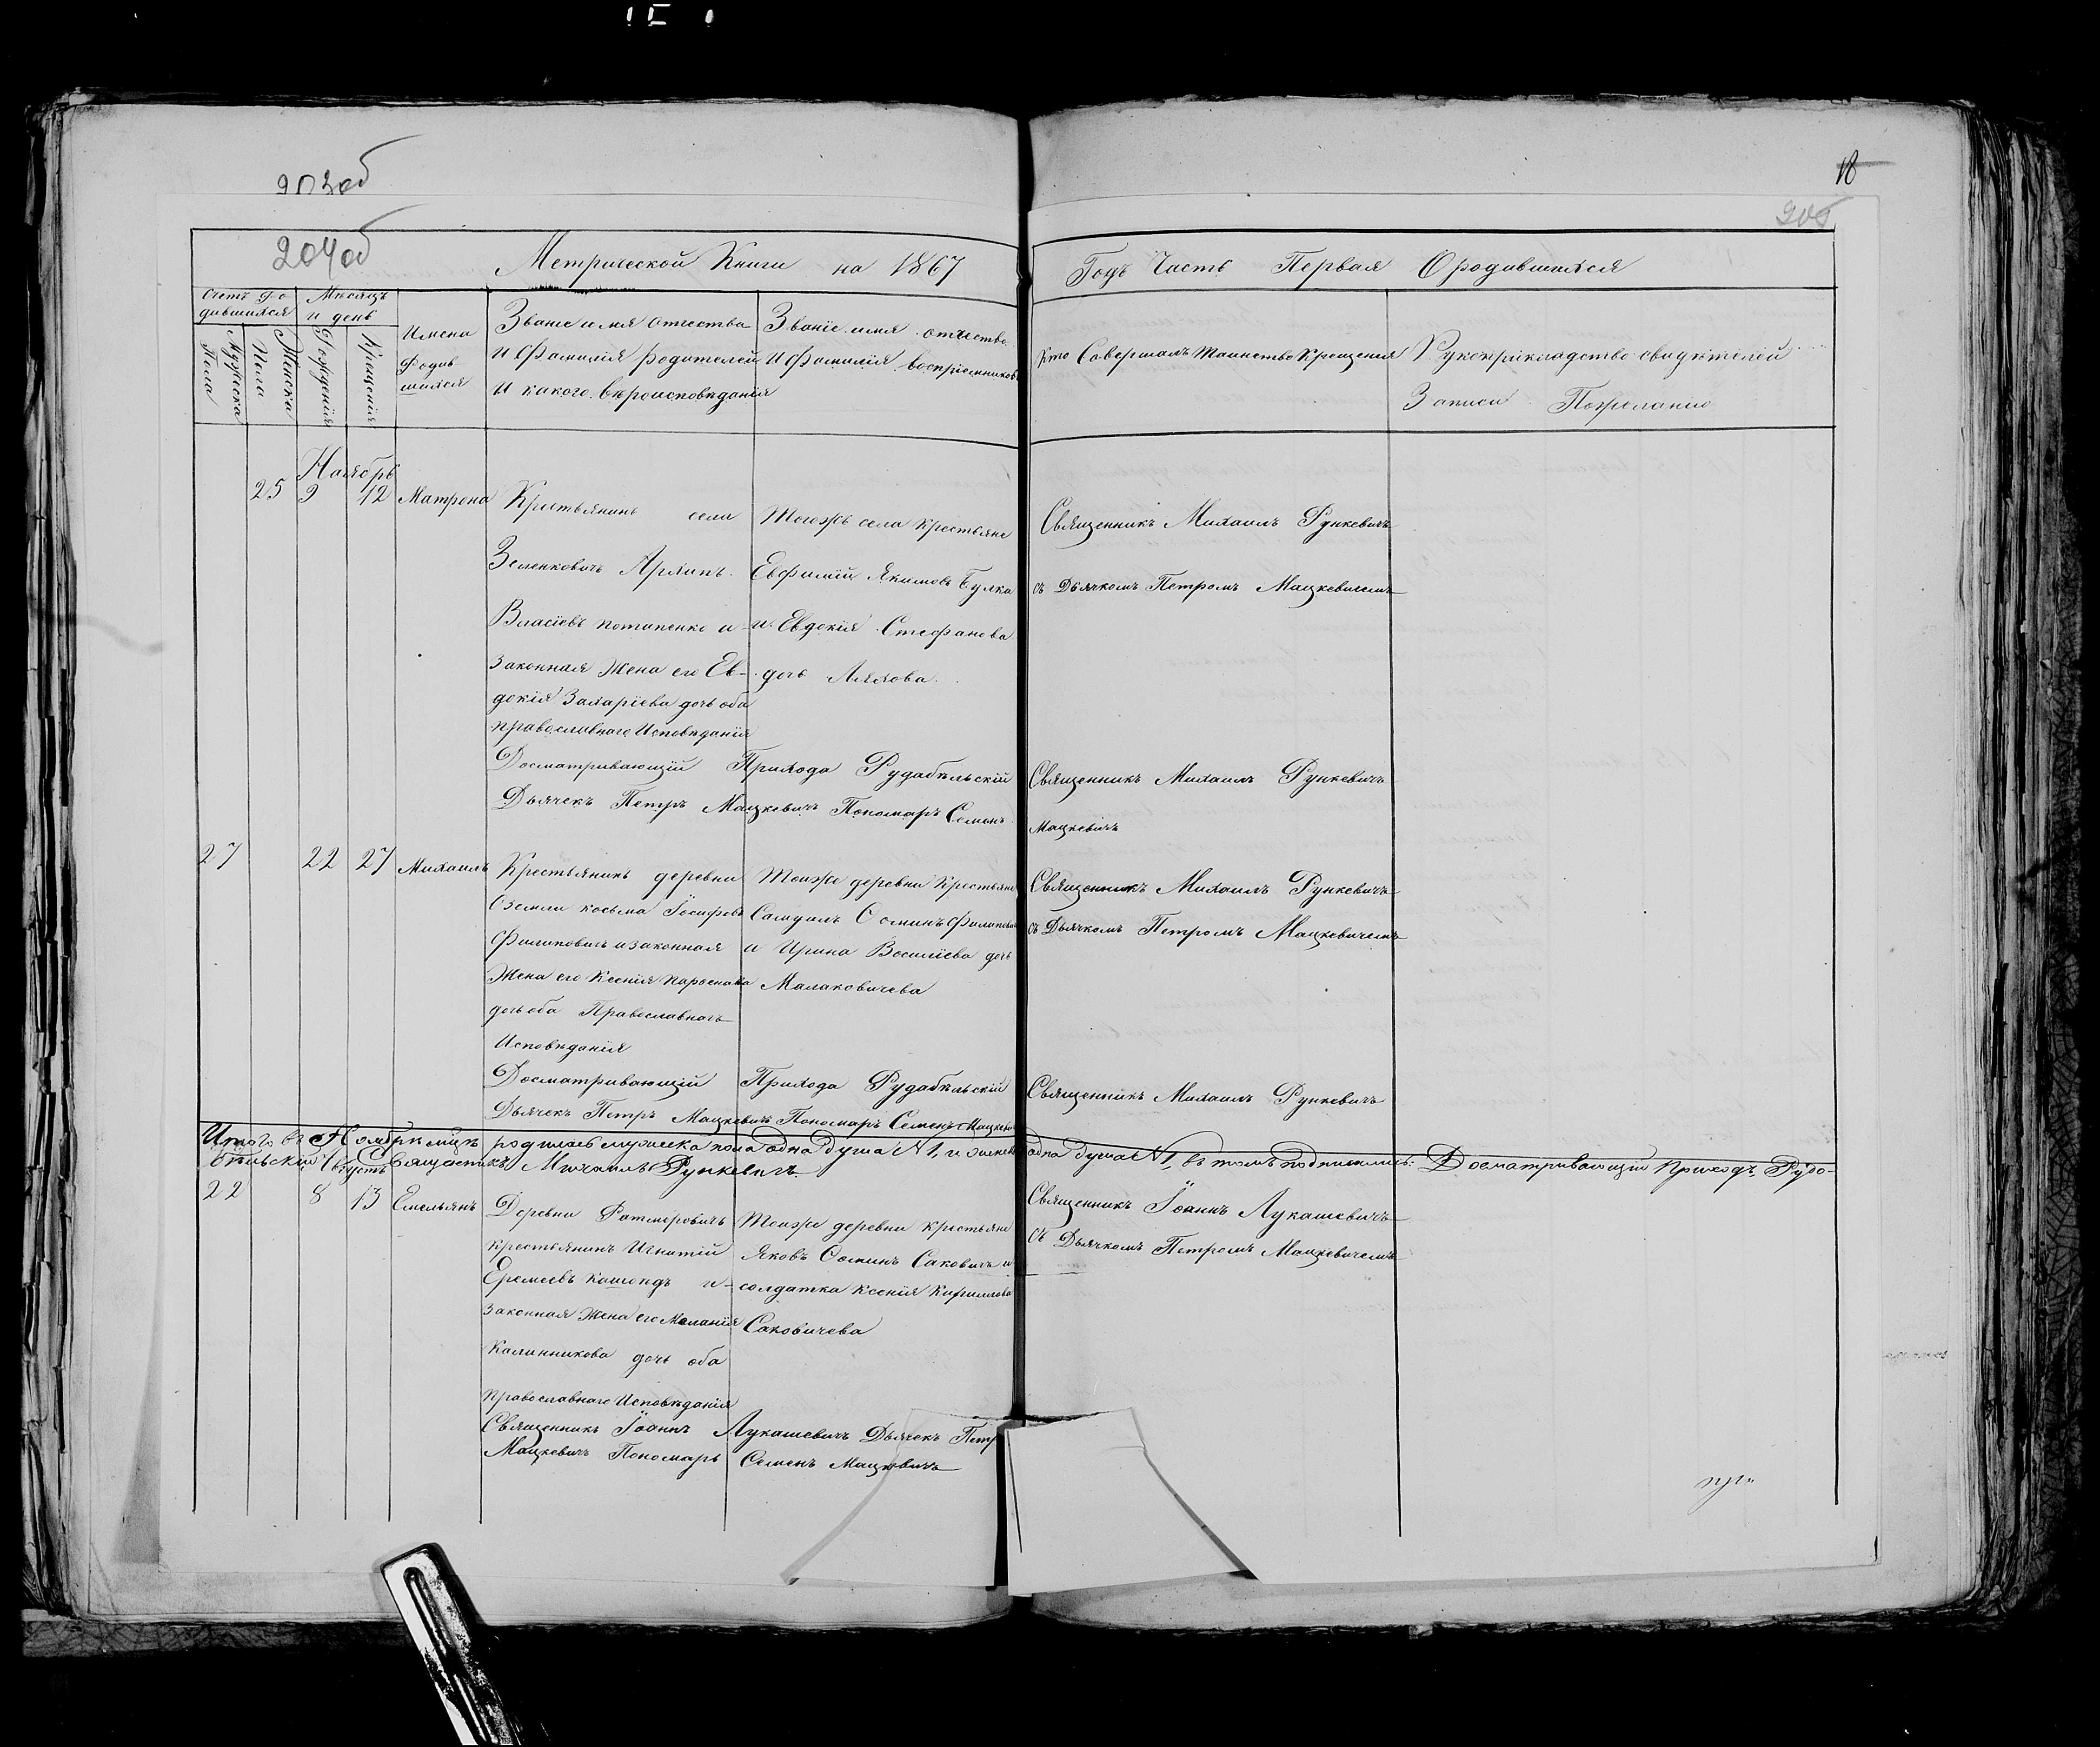 203об
18
204об
205
Метрической Книги на 1867
Годъ Часть Первая О родившихся
Счетъ ро
дившихся
Мужеска
Пола
Женска
Пола
Месяцъ
и день
Рожденія
Крещенія
Имена
Родив
шихся
Званіе имя отчества
и Фамилія родителей
и какого вероисповѣданія
Званіе имя отчество
и Фамилія воспріемниковъ
Кто Совершалъ Таинство Крещенія
Рукоприкладство свидѣтелей
Записи По желанію
Ноябрь
25 9 12 Матрона
Крестьянинъ села
Зеленковичь Архипъ
Власіевъ потапенко и
законная Жена его Ев-
докія Захаріева дочь оба
православнаго Исповѣданія
Тогожъ села крестьяне
Евфимій Якимовъ Булка
и Евдокія Стефанова
дочь Ляхова
Священникъ Михаилъ Рункевичъ
съ Дьячкомъ Петромъ Мацкевичемъ
Досматривающій Прихода Рудабѣльскій Священникъ Михаилъ Рункевичъ
Дьячекъ Петръ Мацкевичъ Пономарь Семенъ Мацкевичъ
27 22 27 Михаилъ
Крестьянинъ деревни
Оземли косьма Іосифовъ
Филиповичь и законная
Жена его Ксенія
дочь оба Православнаго
Исповѣданія
Тоижъ деревни Крестьяне
Самуилъ Фоминъ Филиповичъ
и Ирина Василіева дочь
Малаховичева
Священникъ Михаилъ Рункевичъ
съ Дьячкомъ Петромъ Мацкевичемъ
Досматривающій Прихода Рудабѣльскій Священникъ Михаилъ Рункевичъ
Дьячекъ Петръ Мацкевичъ Пономарь Семенъ Мацкевичъ
Итого въ Ноябрѣ мцѣ родилось мужеска пола одна душа N 1, и женска одна душа N 1, въ томъ подписались: Досматривающій приходъ Рудо-
бѣльскій Священникъ Михаилъ Рункевичъ
Августъ
22 8 13 Емельянъ
Деревни Ратмеровичь
крестьянинъ Игнатій
Еремеевъ и
законная Жена его Меланія
Калинникова дочь оба
православнаго Исповѣданія
Тоиже деревни крестьяне
Яковъ Фоминъ Саковичь и
солдатка Ксенія Кирилова
Саковичева
Священникъ Іоаннъ Лукашевичъ
съ Дьячкомъ Петромъ Мацкевичемъ
Священникъ Іоаннъ Лукашевичъ Дьячекъ Петръ
Мацкевичъ Пономарь Семенъ Мацкевичъ